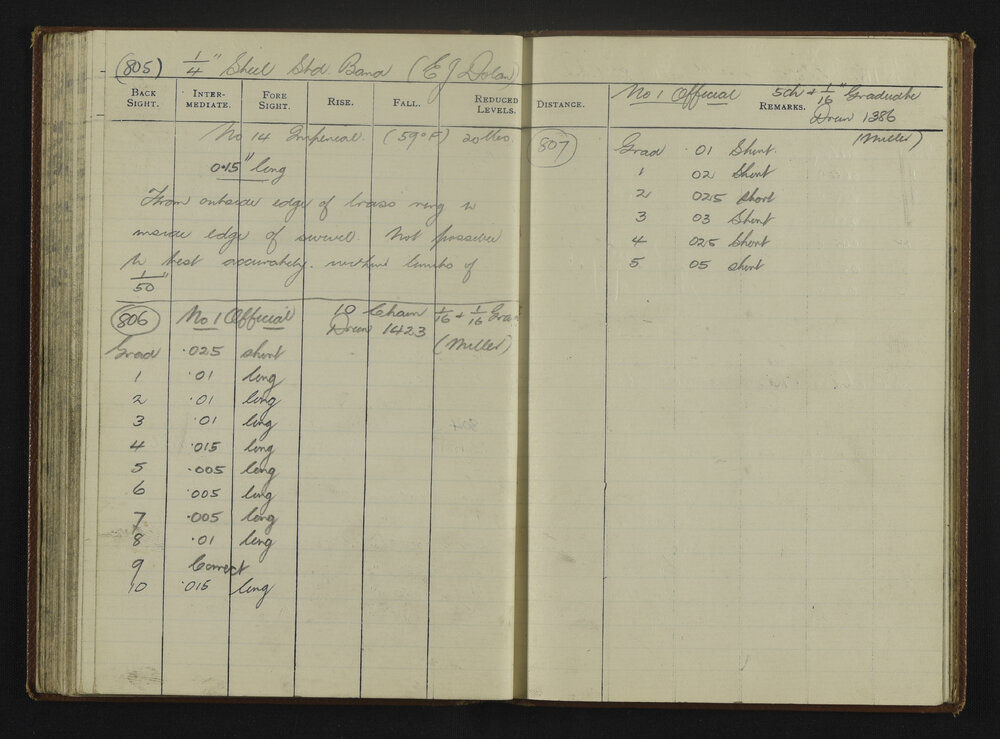 (805) 1/4" Steel Std Band (E J Dolan)
BACK SIGHT. INTER-MEDIATE. FORE SIGHT. RISE. FALL. REDUCED LEVELS.
No 14 Imperial. (59°F) 20 lbs.
0.15" long
From outside edge of brass ring to
inside edge of swivel. Not possible
to test accurately. within limits of
1/50
806 No 1 Official 10 Chain 1/16 + 1/16 Grad
Drum 1423
(Miller)
Grad .025 short
1 .01 long
2 .01 long
3 .01 long
4 .015 long
5 .005 long
6 .005 long
7 .005 long
8 .01 long
9 Correct
10 .015 long
DISTANCE. REMARKS.
No 1 Official 5ch + 1/16" Graduate
Drum 1386
(Miller)
807
Grad .01 Short.
1 02 Short
2 025 short
3 03 Short
4 025 Short
5 05 short